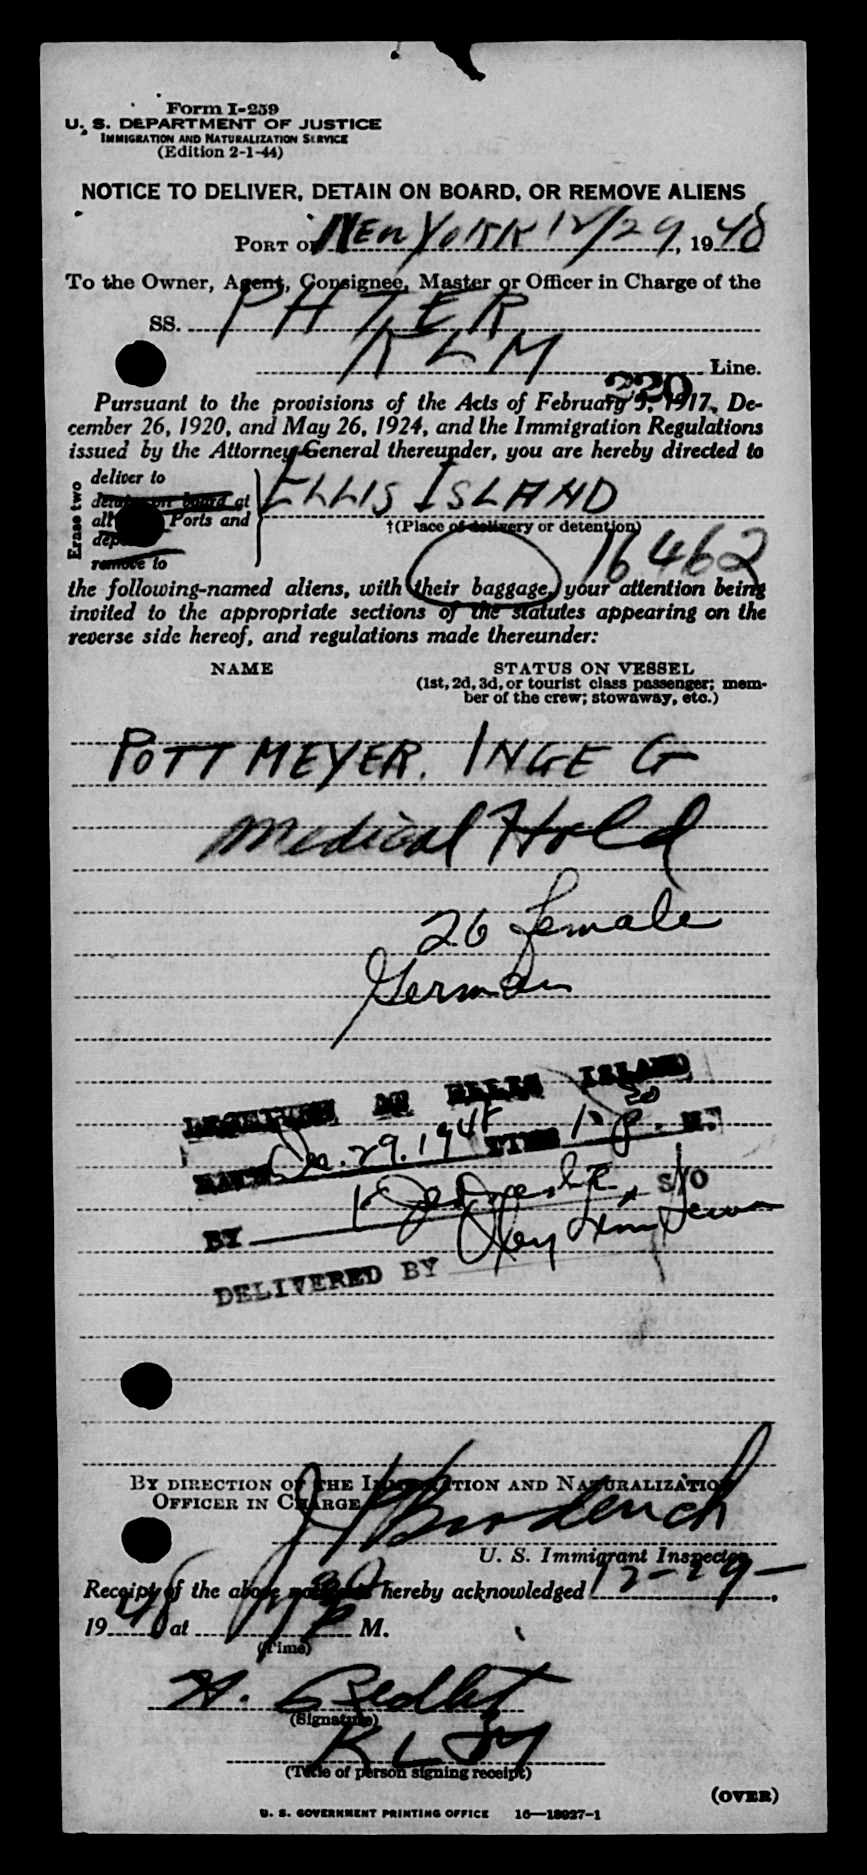 Form I-259
U. S. DEPARTMENT OF JUSTICE
IMMIGRATION AND NATURALIZATION SERVICE
(Edition 2-1-44)
NOTICE TO DELIVER, DETAIN ON BOARD, OR REMOVE ALIENS
PORT OF NEW YORK 12/29, 1948
To the Owner, Agent, Consignee, Master or Officer in Charge of the
SS. PH TER
KLM Line.
220
Pursuant to the provisions of the Acts of February 5, 1917, De-
cember 26, 1920, and May 26, 1924, and the Immigration Regulations
issued by the Attorney General thereunder, you are hereby directed to
Erase two
deliver to
detain on board at
all Ports and
remove to
ELLIS ISLAND
†(Place of delivery or detention)
16462
the following-named aliens, with their baggage, your attention being
invited to the appropriate sections of the statutes appearing on the
reverse side hereof, and regulations made thereunder:
NAME STATUS ON VESSEL
(1st, 2d, 3d, or tourist class passenger; mem-
ber of the crew; stowaway, etc.)
POTTMEYER, INGE G
Medical Hold
26 female
German
RECEIVED AT ELLIS ISLAND
DATE Dec. 29. 1948 TIME P. M.
BY S/O
DELIVERED BY
BY DIRECTION OF THE IMMIGRATION AND NATURALIZATION
OFFICER IN CHARGE
U. S. Immigrant Inspector
Receipt of the above notice is hereby acknowledged 12-29-,
1948 at P M.
(Time)
H.
(Signature)
(Title of person signing receipt)
(OVER)
U. S. GOVERNMENT PRINTING OFFICE 16—18027-1